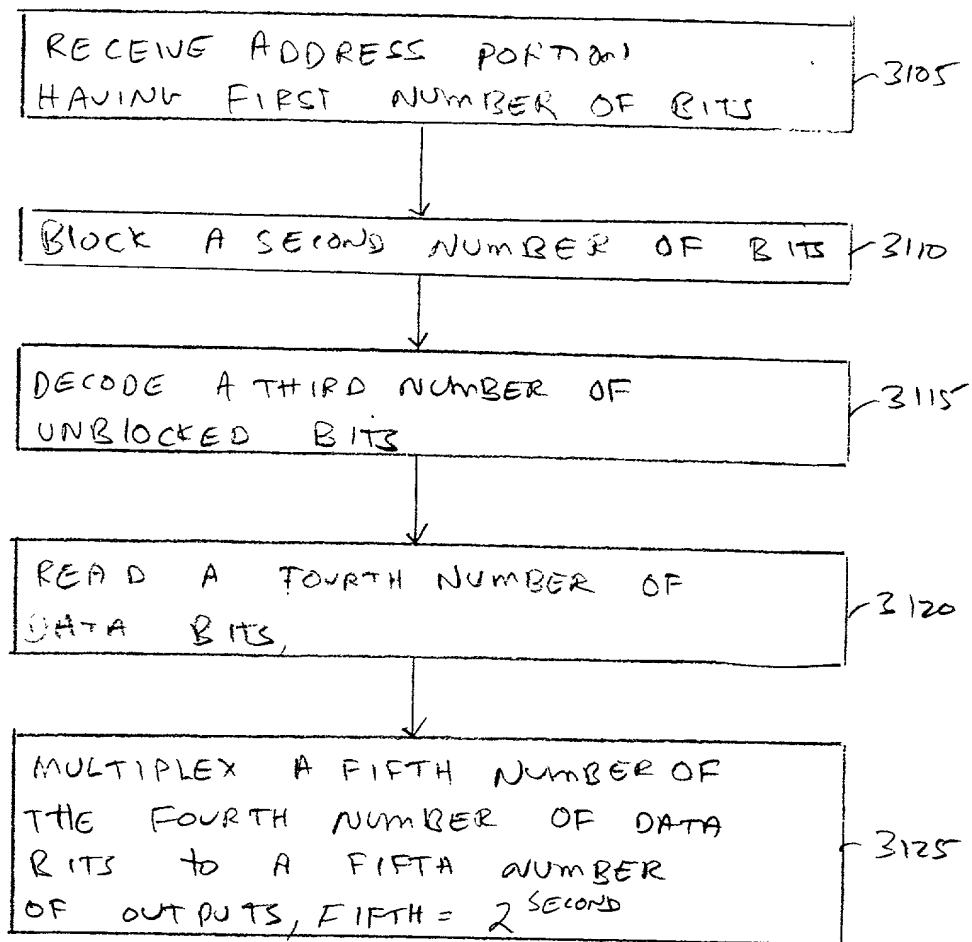 RECEIVE ADDRESS PORTION
HAVING FIRST NUMBER OF BITS
3105
BLOCK A SECOND NUMBER OF BITS
3110
DECODE A THIRD NUMBER OF
UNBLOCKED BITS
3115
READ A FOURTH NUMBER OF
DATA BITS,
3120
MULTIPLEX A FIFTH NUMBER OF
THE FOURTH NUMBER OF DATA
BITS to A FIFTH NUMBER
OF OUTPUTS, FIFTH = 2^SECOND
3125